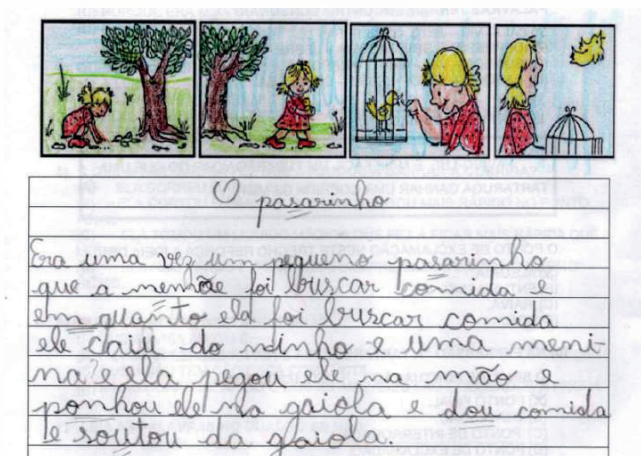 O pasarinho
Era uma vez um pequeno pasarinho
que a menhãe foi buscar comida e
em quanto ela foi buscar comida
ele caiu do ninho e uma meni-
na? e ela pegou ele na mão e
ponhou ele na gaiola e dou comida
e soutou da gaiola.